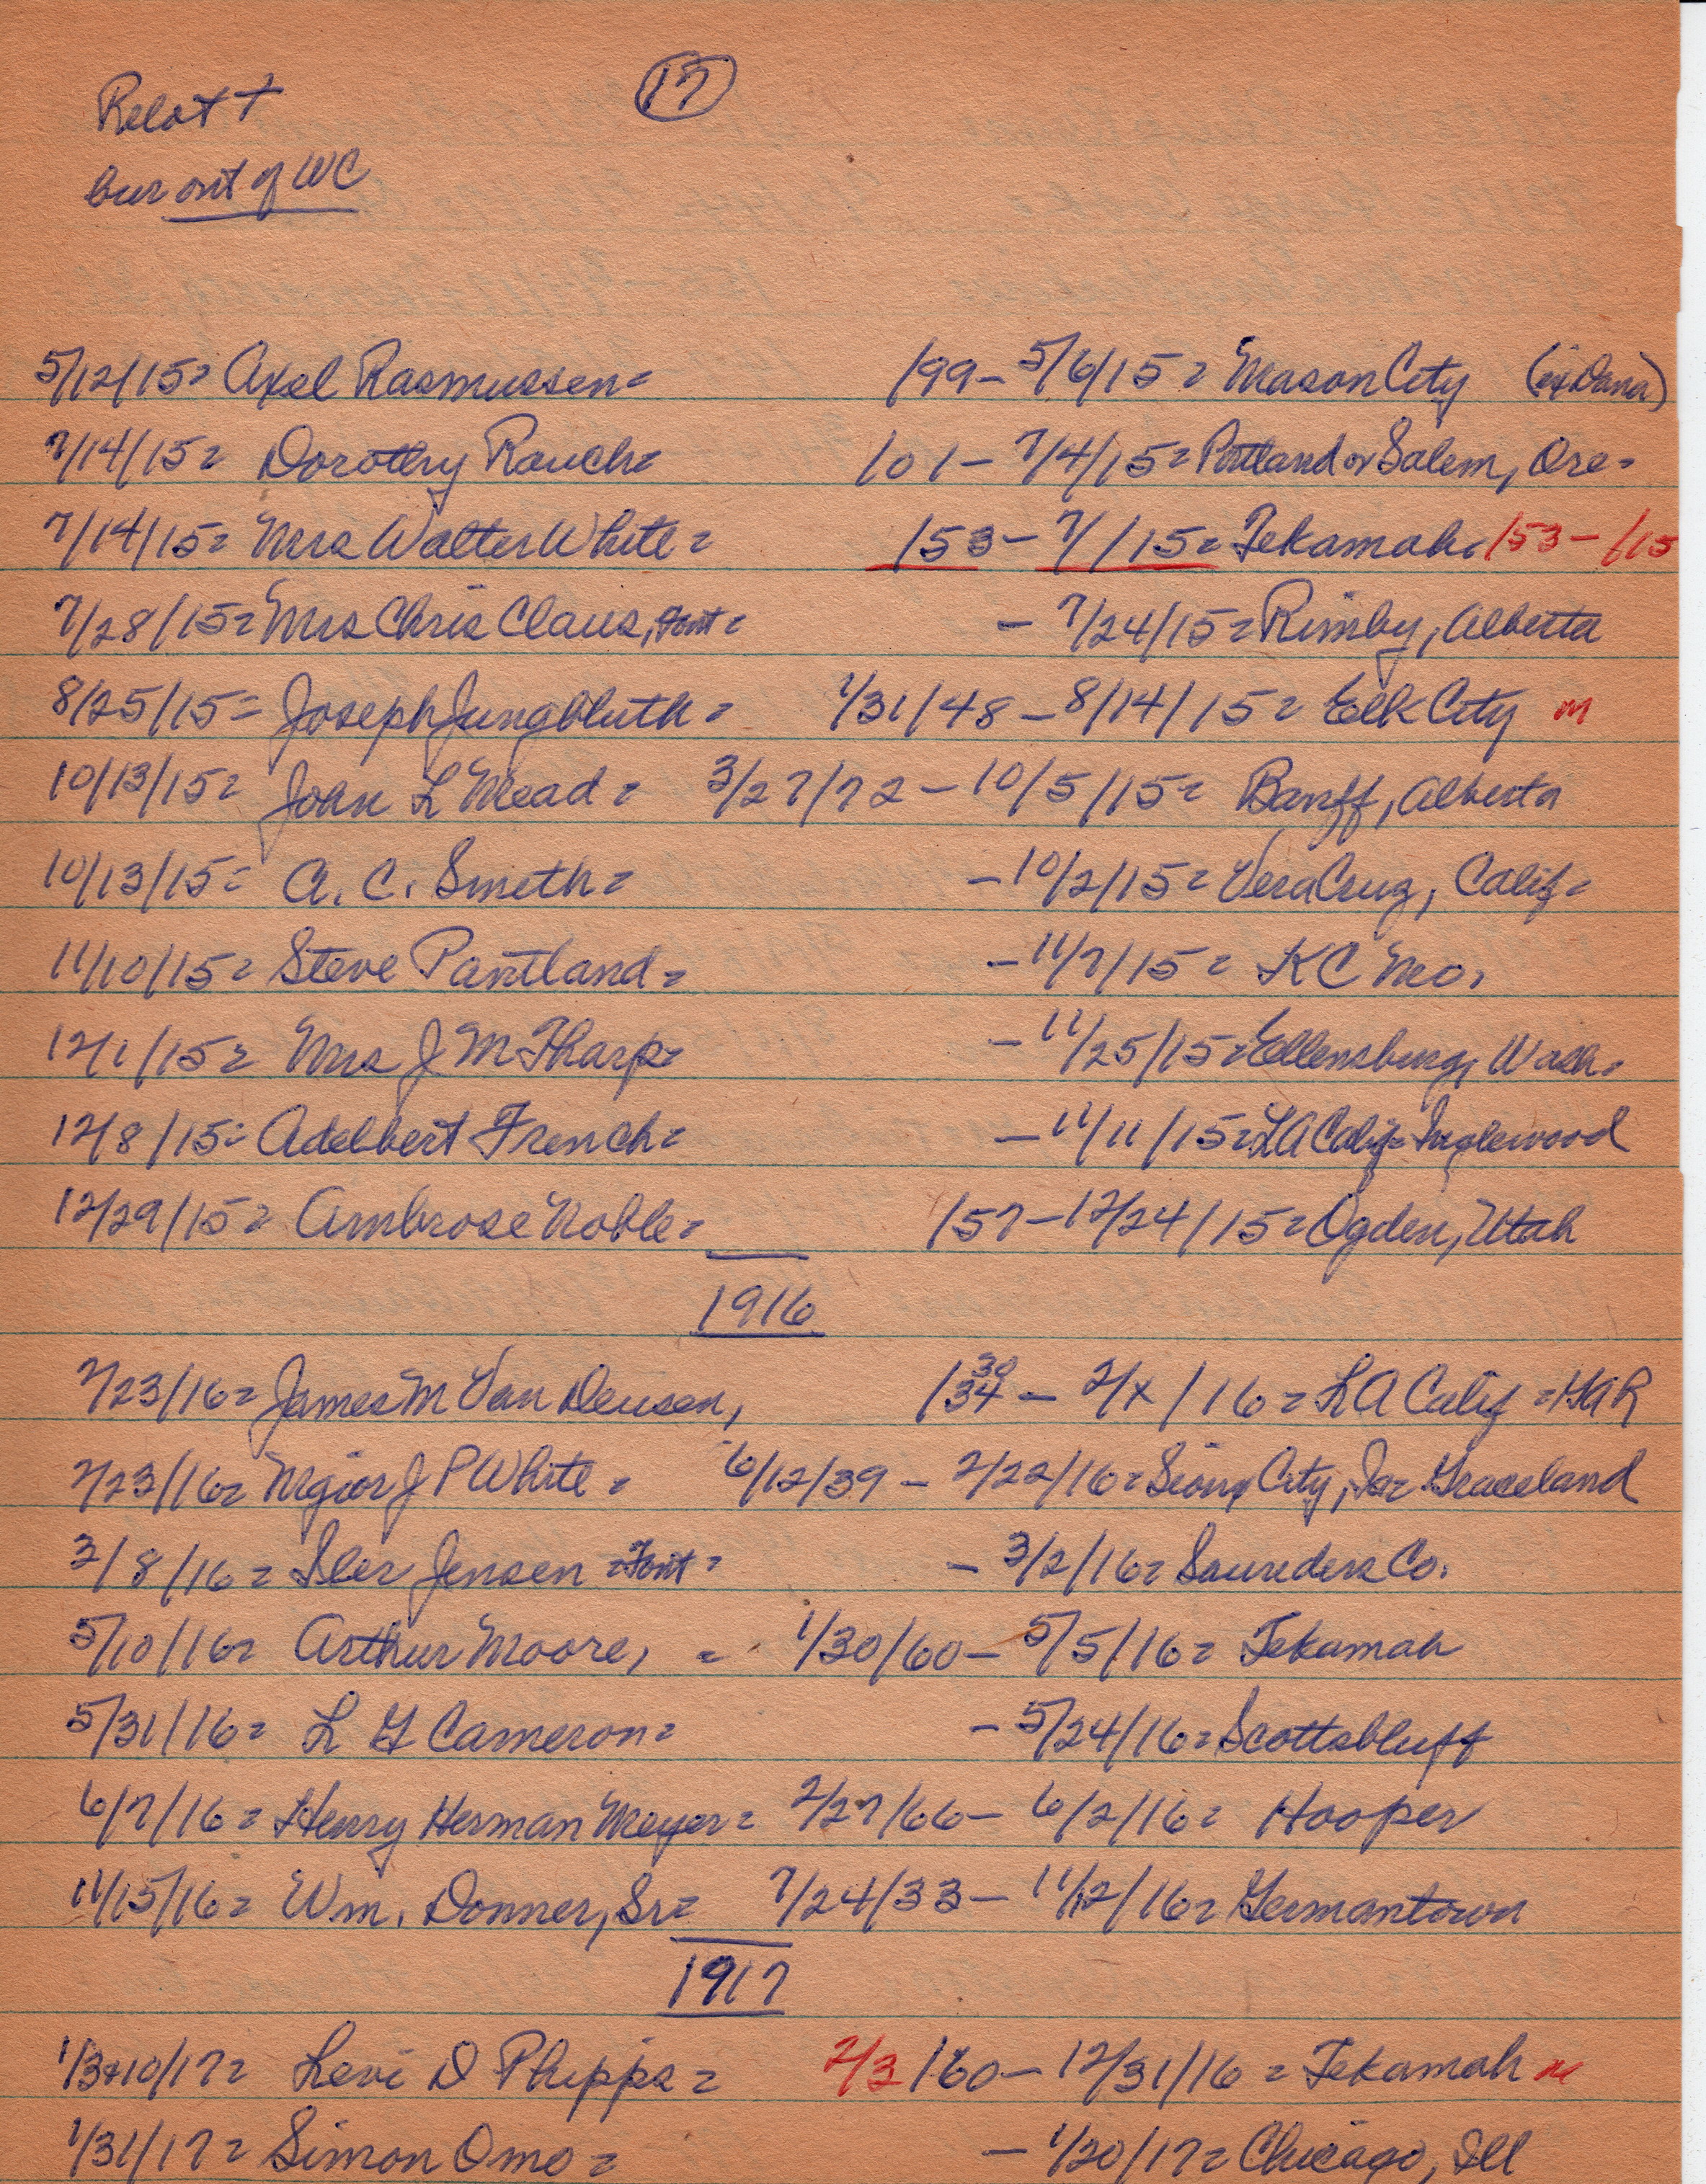 17
Relat +
bur out of WC
5/12/15= Axel Rasmussen= /99- 5/6/15= Mason City (ix Dana)
7/14/15= Dorothy Rauch= /01- 7/4/15= Portland or Salem, Ore=
7/14/15= Mrs Walter White= /53- 7/ /15= Tekamah. /53- /15
7/28/15= Mrs Chris Claus, Font= - 7/24/15= Rimby, Alberta
8/25/15= Joseph Jungbluth= 1/31/48-8/14/15= Elk City m
10/13/15= John L Mead= 3/27/72-10/5/15= Banff, Alberta
10/13/15= A. C. Smith= -10/2/15= Vera Cruz, Calif=
11/10/15= Steve Pantland= -11/7/15= KC Mo.
12/1/15= Mrs J M Tharp= -11/25/15= Ellensburg, Wash.
12/8/15= Adelbert French= -11/11/15= LA Calif= Inglewood
12/29/15= Ambrose Noble= /57-12/24/15= Ogden, Utah
1916
2/23/16= James M Van Deusen, /34 30 - 2/x/16= LA Calif =
2/23/16= Major J P White= 6/12/39- 2/22/16= Sioux City, Ia= Graceland
3/8/16= Iler Jensen =Font= - 3/2/16= Saunders Co.
5/10/16= Arthur Moore, = 1/30/60- 5/5/16= Tekamah
5/31/16= L G Cameron= - 5/24/16= Scottsbluff
6/7/16= Henry Herman Meyer= 2/27/66- 6/2/16= Hooper
11/15/16= Wm. Donner, Sr= 7/24/33- 11/12/16= Germantown
1917
1/3+10/17= Levi D Phipps= 2/3/60- 12/31/16= Tekamah m
1/31/17= Simon Omo= - 1/20/17= Chicago, Ill